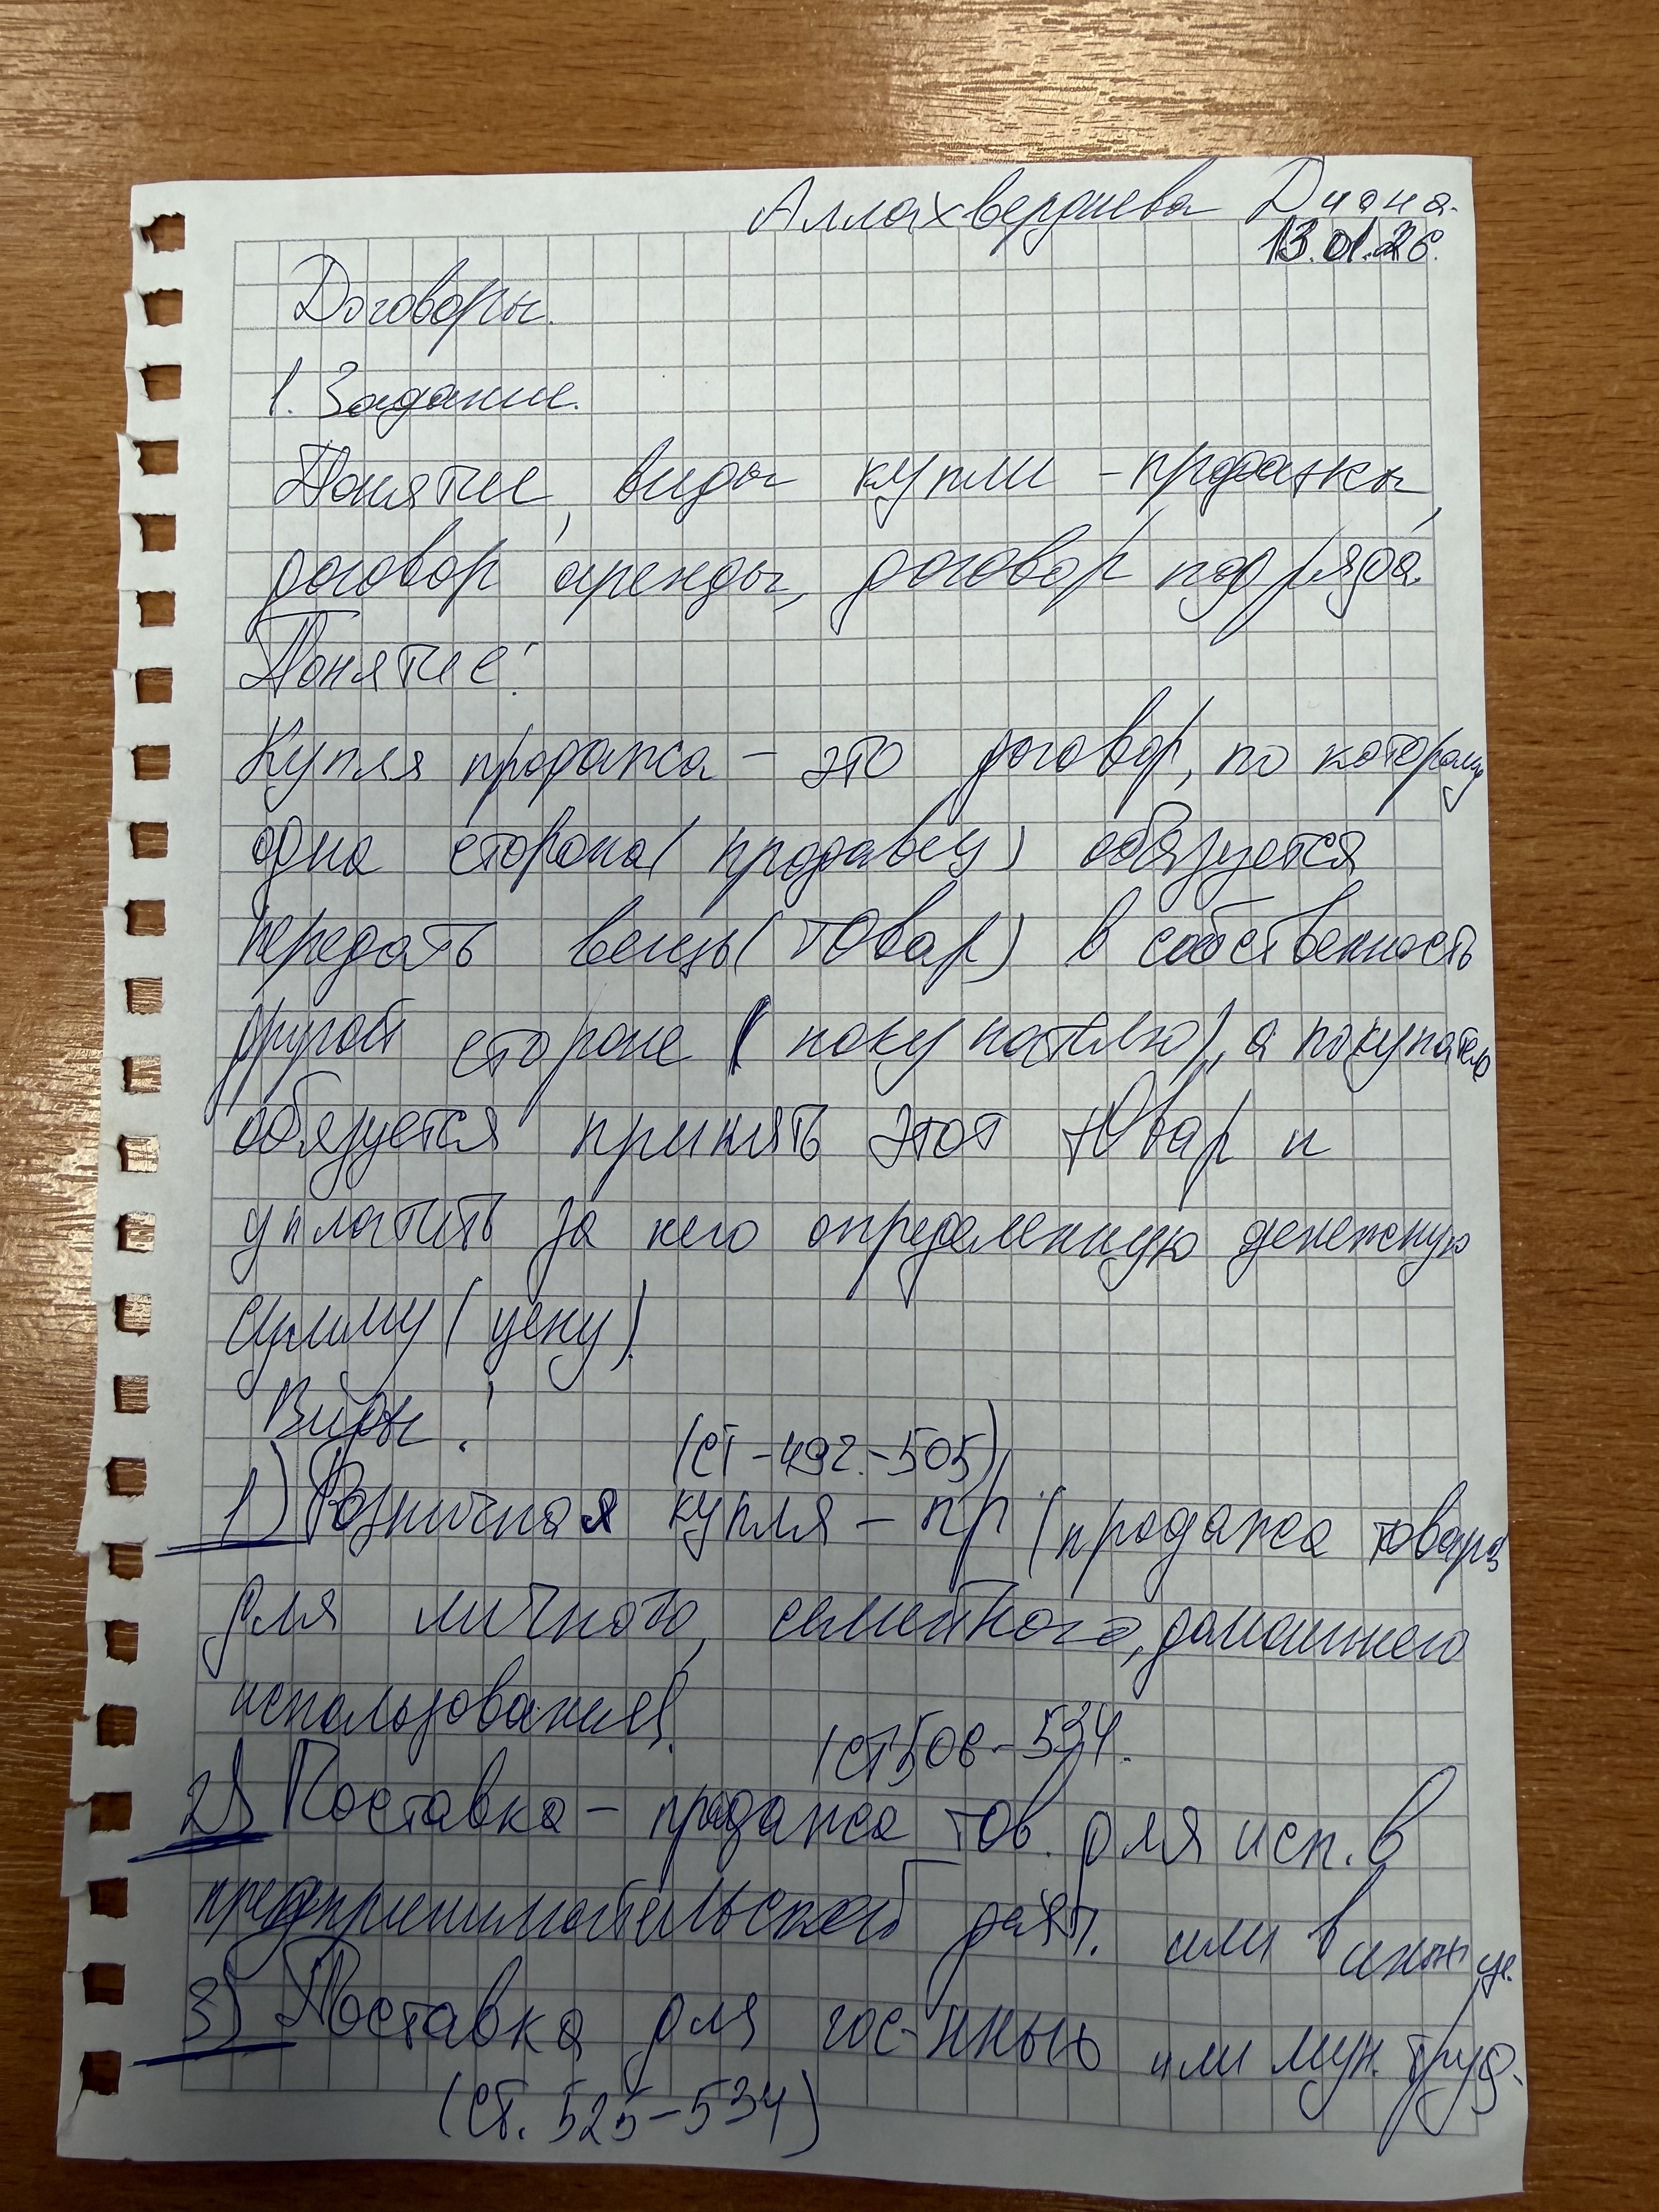 Аллахвердиева Диана.
13.01.26.
Договоры.
1. Задание.
Понятие, виды купли-продажы,
договор аренды, договор подряда.
Понятие:
Купля продажа – это договор, по которому
одна сторона (продавец) обязуется
передать вещь (товар) в собственность
другой стороне (покупателю), а покупатель
обязуется принять этот товар и
уплатить за него определенную денежную
сумму (цену).
Виды:
(ст-492.-505)
1) Розничная купля – пр. (продажа товара
для личного, семейного, домашнего
использования).
(ст506-534.
2) Поставка – продажа тов. для исп. в
предпринимательской деят. или в иных це.
3) Поставка для гос-нных или мун. нужд.
(ст. 525-534)